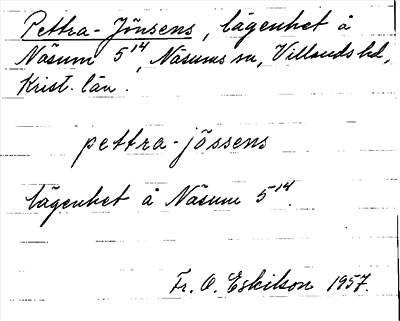 Pettra-Jönsens, lägenhet å
Näsum 5¹⁴, Näsums sn, Villands hd,
Krist. län.
pettra-jössens
lägenhet å Näsum 5¹⁴.
Fr. O. Eskilson 1957.